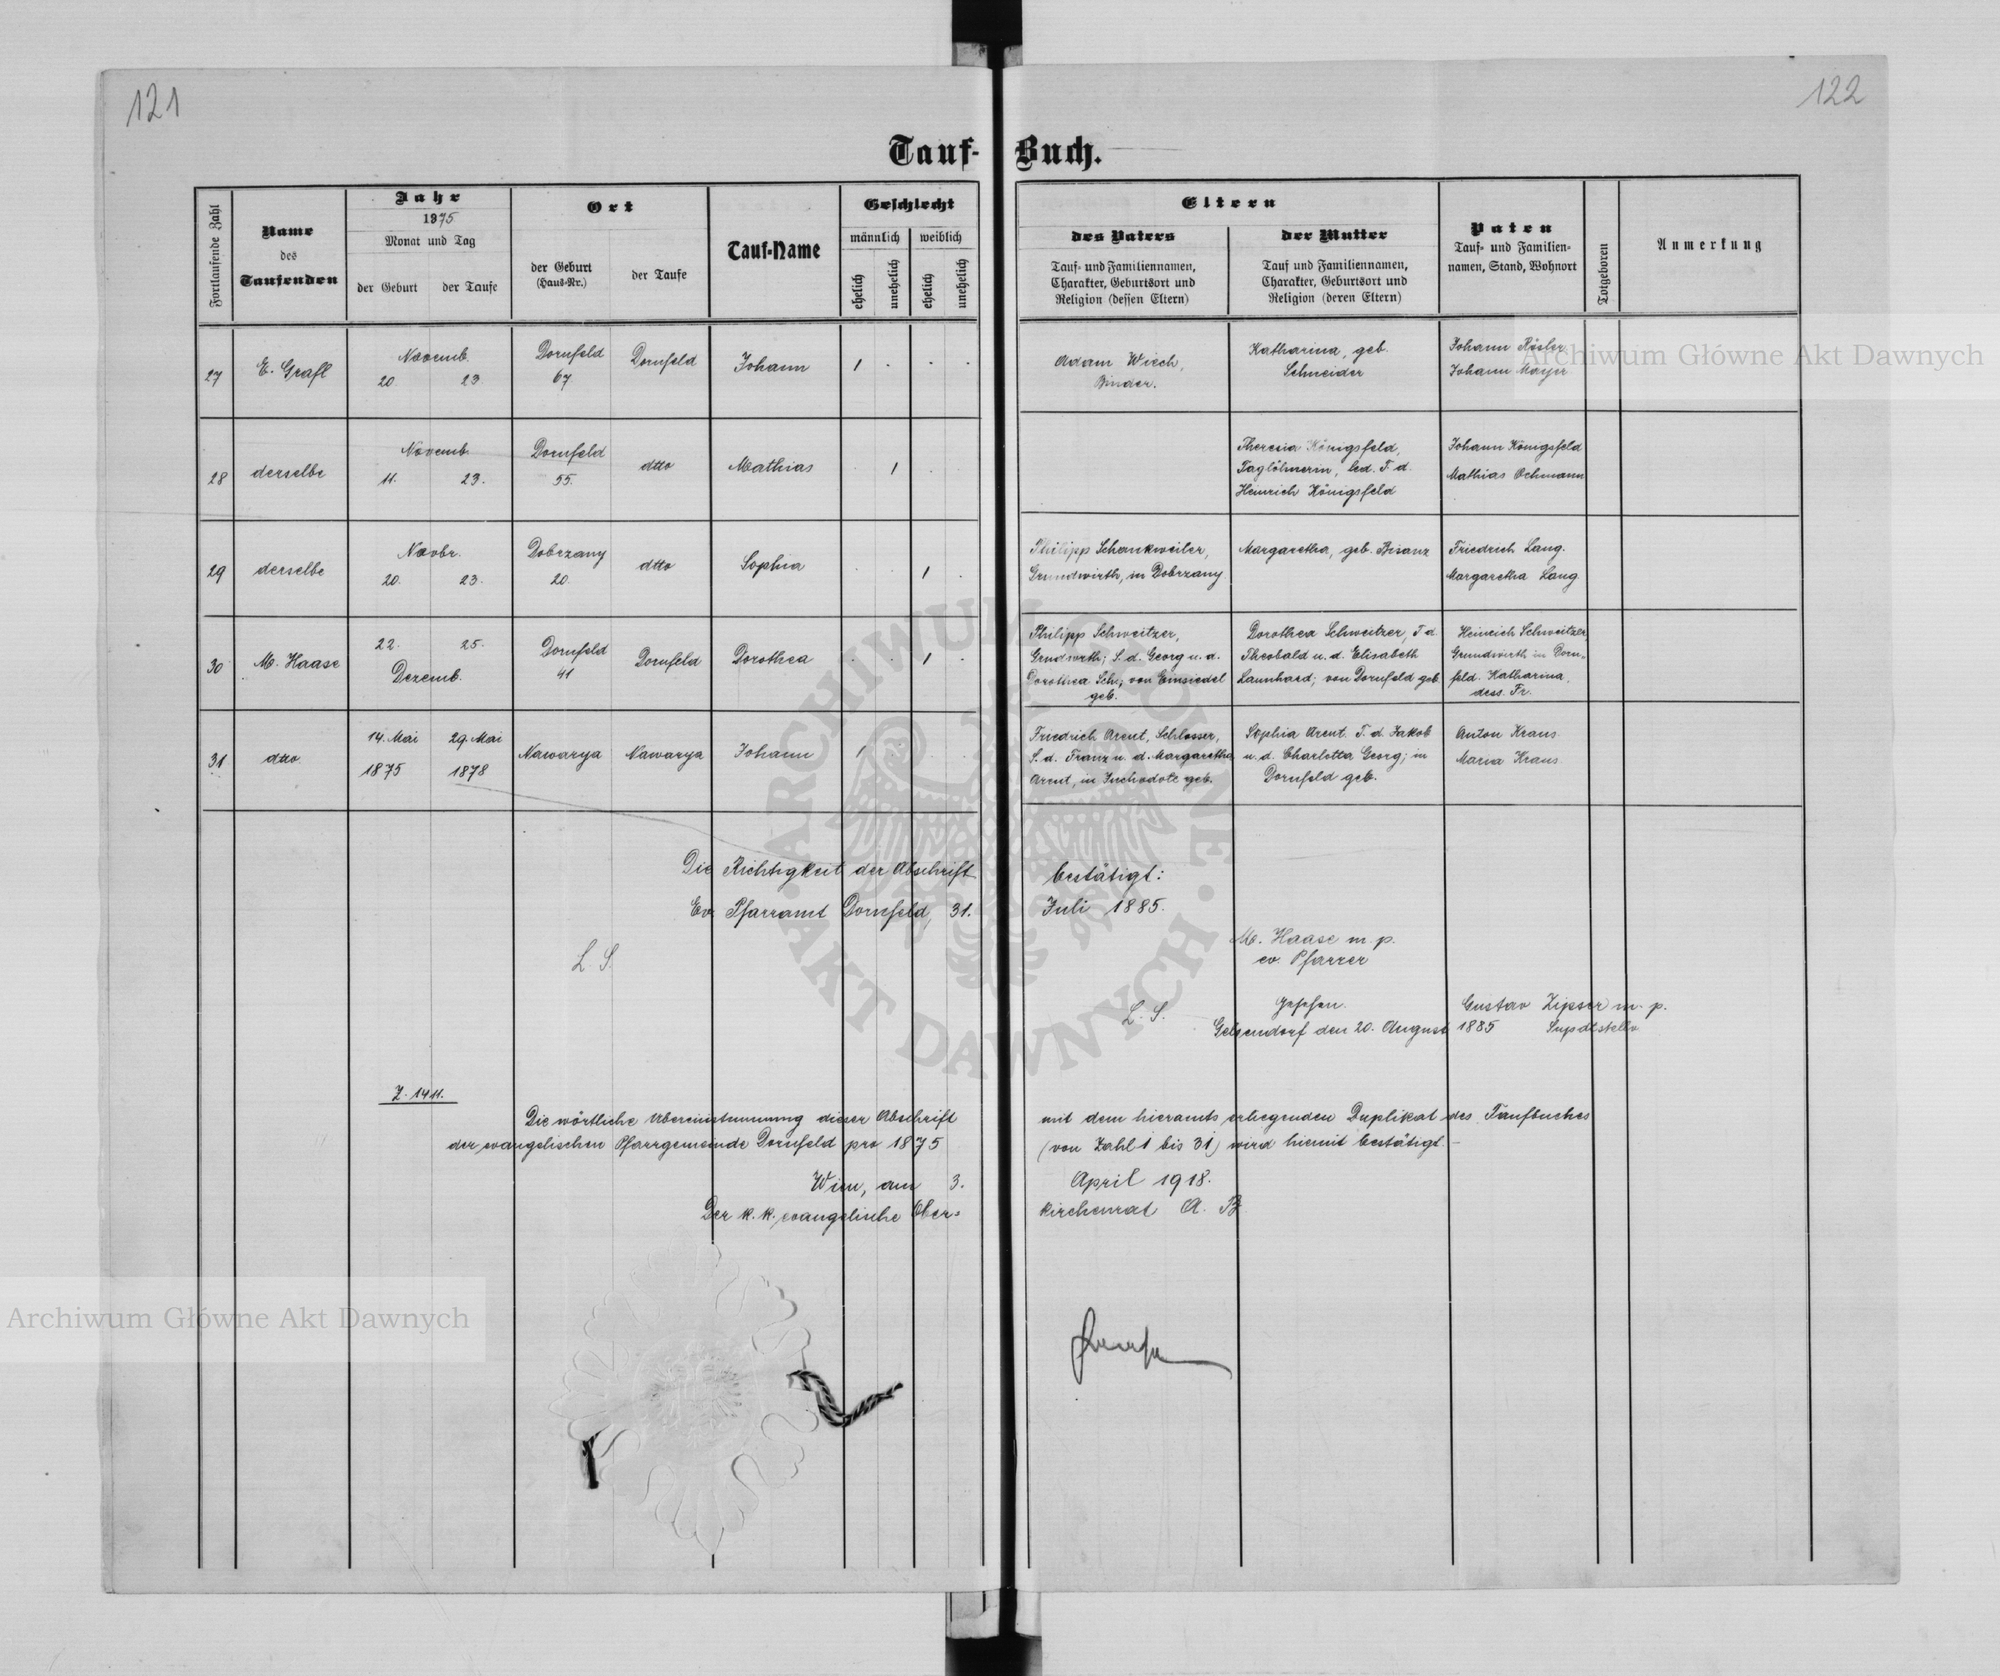 121
122
Tauf-Buch.
Fortlaufende Zahl
Name
des
Taufenden
Jahr
1875
Monat und Tag
der Geburt
der Taufe
Ort
der Geburt
(Haus-Nr.)
der Taufe
Tauf-Name
Geschlecht
männlich
weiblich
ehelich
unehelich
ehelich
unehelich
Eltern
des Vaters
Tauf- und Familiennamen,
Charakter, Geburtsort und
Religion (dessen Eltern)
der Mutter
Tauf und Familiennamen,
Charakter, Geburtsort und
Religion (deren Eltern)
Paten
Tauf- und Familien-
namen, Stand, Wohnort
Totgeboren
Anmerkung
27
E. Grafl
Novemb.
20.
23.
Dornfeld
67
Dornfeld
Johann
1
Adam Wiech,
Binder.
Katharina, geb.
Schneider
Johann Rösler
Johann Mayer
28
derselbe
Novemb.
11.
23.
Dornfeld
55.
dtto
Mathias
1
Theresia Königsfeld,
Taglöhnerin, led. T. d.
Heinrich Königsfeld
Johann Königsfeld
Mathias Ochmann
29
derselbe
Novbr.
20.
23.
Dobrzany
20.
dtto
Sophia
1
Philipp Schankweiler,
Grundwirth, in Dobrzany
Margaretha, geb. Bisanz
Friedrich Lang.
Margaretha Lang
30
M. Haase
22.
25.
Dezemb.
Dornfeld
41
Dornfeld
Dorothea
1
Philipp Schweitzer,
Grndwirth; S. d. Georg u. d.
Dorothea Sch; von Einsiedel
geb.
Dorothea Schweitzer, T. d.
Theobald u. d. Elisabeth
Launhard; von Dornfeld geb.
Heinrich Schweitzer
Grundwirth in Dorn-
feld. Katharina,
dess. Fr.
31
dtto
14. Mai
29. Mai
1875
1878
Nawarya
Nawarya
Johann
1
Friedrich Arent, Schlosser,
S. d. Franz u. d. Margaretha
Arent, in geb.
Sophia Arent. T. d. Jakob
u. d. Charlotta Georg; in
Dornfeld geb.
Anton Kraus
Maria Kraus
Die Richtigkeit der Abschrift bestätigt:
Ev. Pfarramt Dornfeld, 31. Juli 1885.
L. S.
M. Haase m. p.
ev. Pfarrer
L. S.
Gesehen.
Gustav Zipser m. p.
Gelsendorf den 20. August 1885
Supdtstellv.
Z. 1411.
Die wörtliche Übereinstimmung dieser Abschrift mit dem hieramts erliegenden Duplikat des Taufbuches
der evangelischen Pfarrgemeinde Dornfeld pro 1875 (von Zahl 1 bis 31) wird hiemit bestätigt.-
Wien, am 3. April 1918.
Der k. k. evangelische Ober=kirchenrat A. B.
Archiwum Główne Akt Dawnych
Archiwum Główne Akt Dawnych
ARCHIWUM GŁÓWNE · AKT DAWNYCH ·